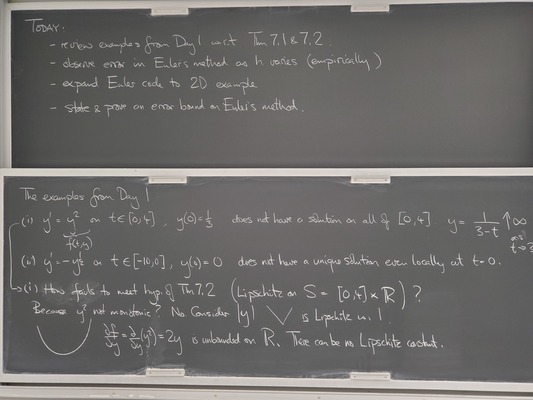 TODAY.
- review examples from Day 1 w.r.t. Tm 7.1 & 7.2.
- observe error in Euler's method as h varies (empirically)
- expand Euler code to 2D example
- state & prove an error bound on Euler's method.
The examples from Day 1
(i) y' = y² on t∈[0,4], y(0)=1/3 does not have a solution on all of [0,4]. y = 1/(3-t) ↑∞ as t→3
f(t,y)
(ii) on t∈[-10,0], y(0)=0 does not have a unique solution even locally at t=0.
(i) How fails to meet hyp. of Tm 7.2 (Lipschitz on S = [0,4] × ℝ)?
Because y² not monotonic? No. Consider |y| is Lipschitz w. 1
∂f/∂y = ∂/∂y (y²) = 2y is unbounded on ℝ. There can be no Lipschitz constant.